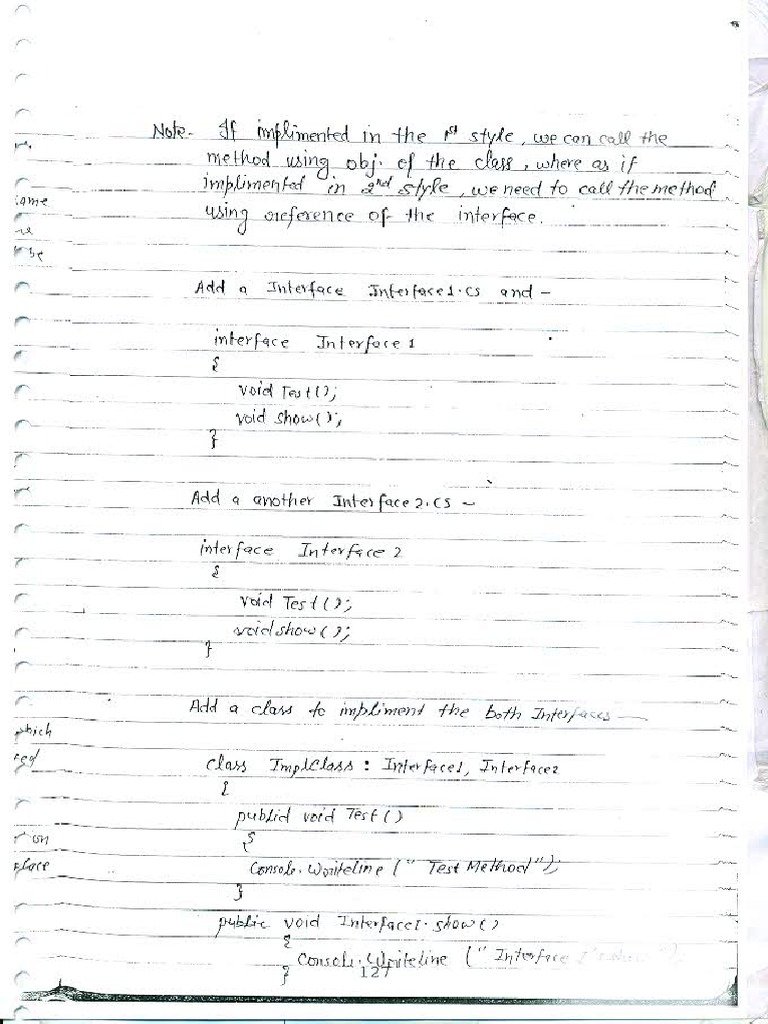 Note- If implimented in the 1st style, we can call the
method using obj. of the class, where as if
implimented in 2nd style, we need to call the method
using reference of the interface.
Add a Interface Interface1.cs and -
interface Interface 1
{
void Test();
void show();
}
Add a another Interface2.cs -
interface Interface 2
{
void Test();
void show();
}
Add a class to impliment the both Interfaces -
class ImplClass : Interface1, Interface2
{
public void Test()
{
Console.Writeline (" Test Method");
}
public void Interface1.show()
{
Console.Writeline (" Interface
}
127
ame
be
which
on
face